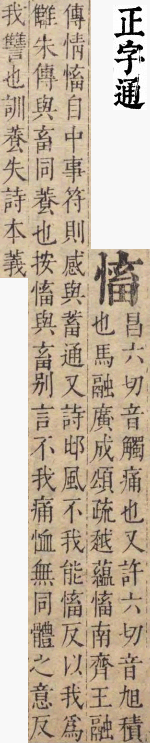 正字通
慉
昌六切音觸痛也又許六切音旭積
也馬融廣成頌疏越蘊慉南齊王融
傳情慉自中事符則感與蓄通又詩邶風不我能慉反以我爲
讎朱傳與畜同養也按慉與畜别言不我痛恤無同體之意反
我讐也訓養失詩本義